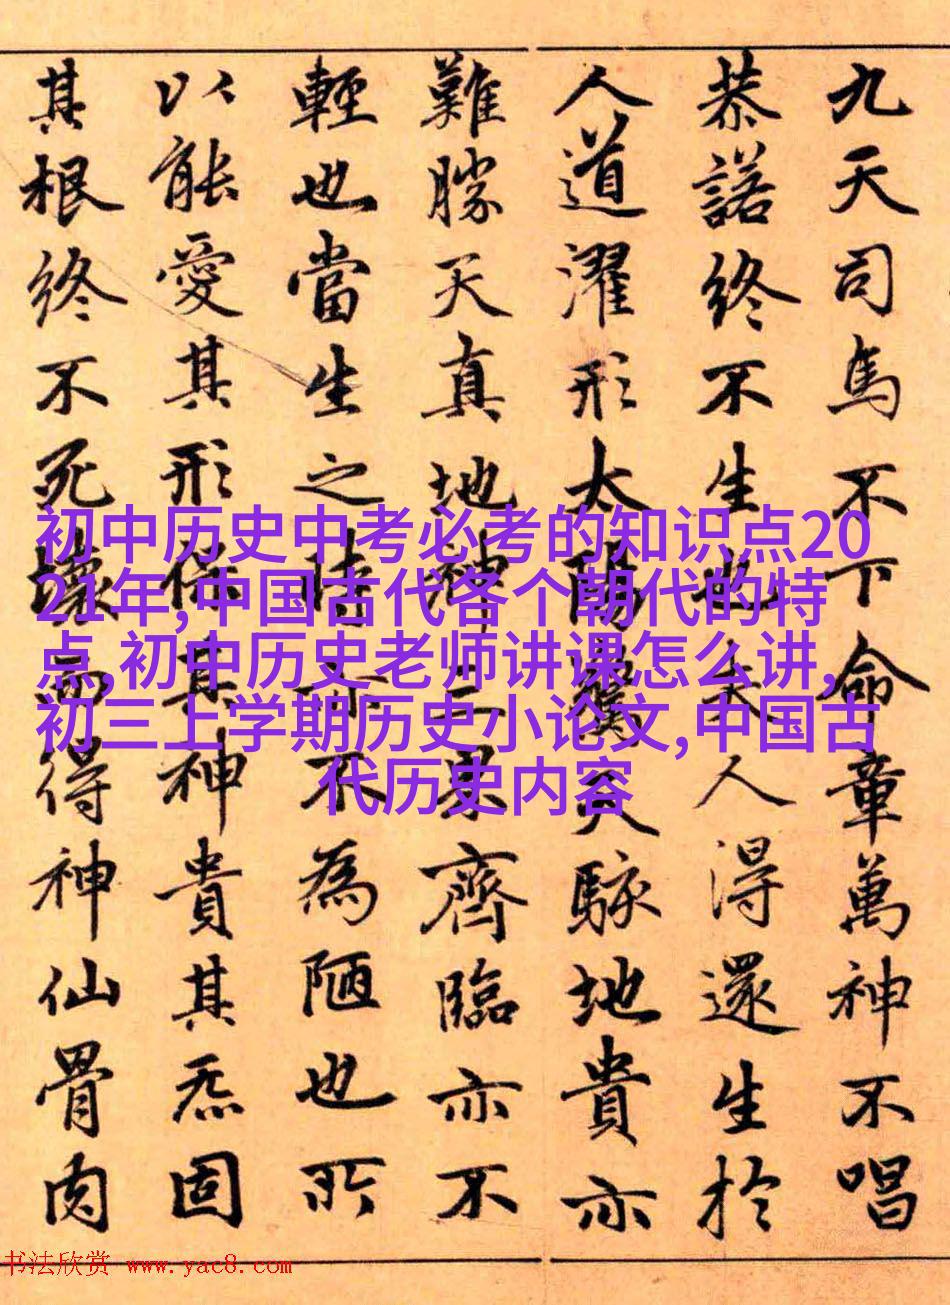 九天司馬不下命章萬神不唱
恭諾終不生也夫人得還生於
人道濯形太陽驚天駭地貴亦
難勝天真地神三界齊臨亦不
輕也當生之時亦不為陋也所
以能愛其形保其神貴其炁固
其根終不死壞而得神仙骨肉
初中历史中考必考的知识点20
21年,中国古代各个朝代的特
点,初中历史老师讲课怎么讲,
初三上学期历史小论文,中国古
代历史内容
书法欣赏 www.yac8.com